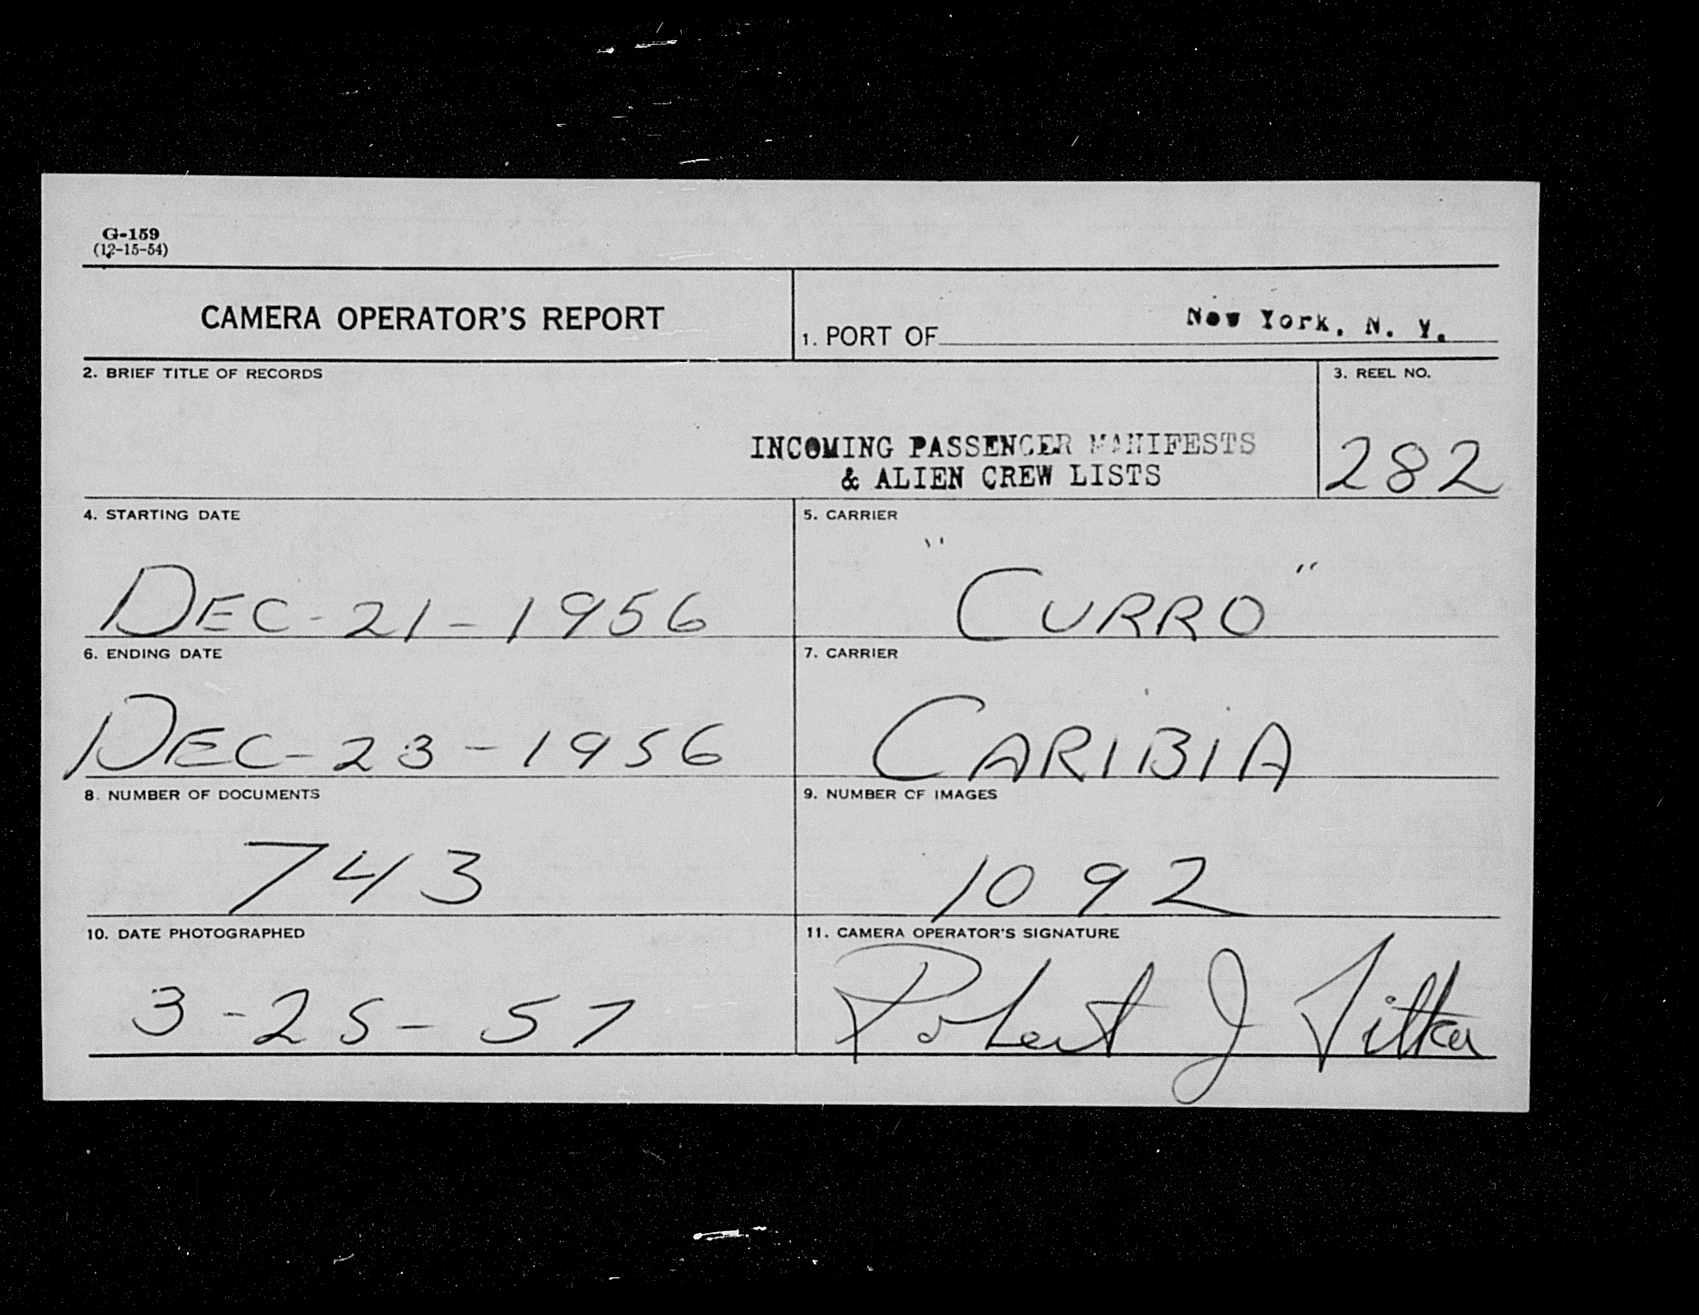 G-159
(12-15-54)
CAMERA OPERATOR'S REPORT
1. PORT OF New York, N. Y.
2. BRIEF TITLE OF RECORDS
INCOMING PASSENGER MANIFESTS
& ALIEN CREW LISTS
3. REEL NO.
282
4. STARTING DATE
DEC-21-1956
5. CARRIER
"CURRO"
6. ENDING DATE
DEC-23-1956
7. CARRIER
CARIBIA
8. NUMBER OF DOCUMENTS
743
9. NUMBER OF IMAGES
1092
10. DATE PHOTOGRAPHED
3-25-57
11. CAMERA OPERATOR'S SIGNATURE
Robert J